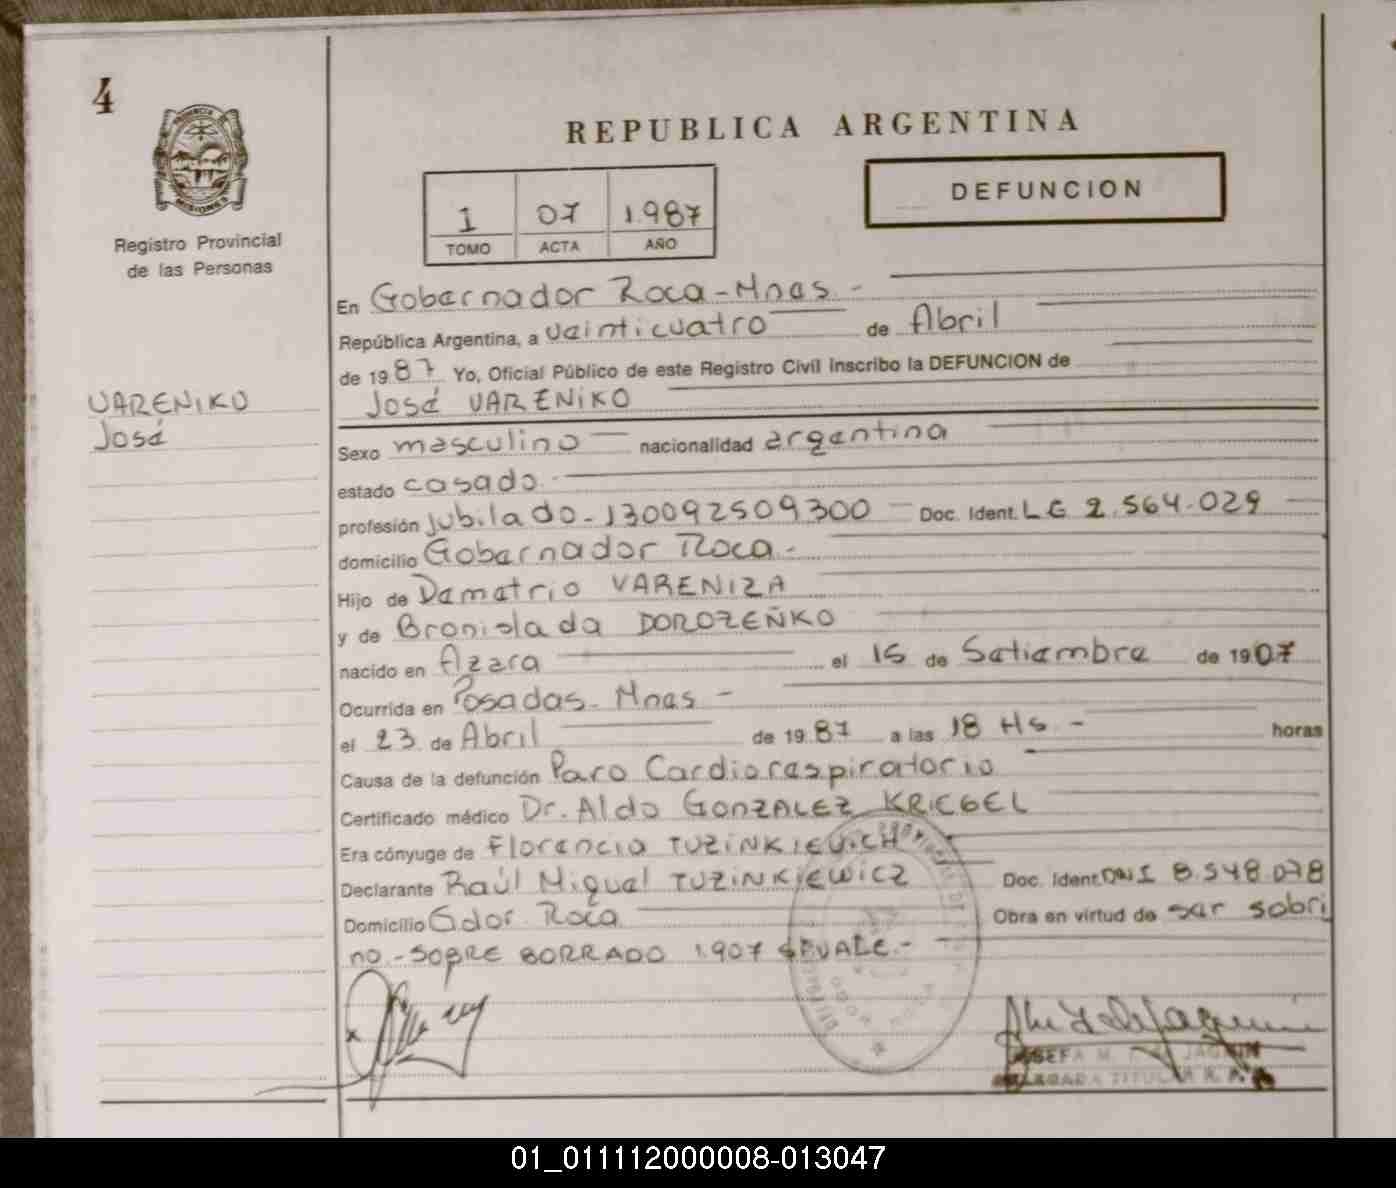 4
MISIONES
Registro Provincial
de las Personas
VARENIKO
José
REPUBLICA ARGENTINA
1 07 1.987
TOMO ACTA AÑO
DEFUNCION
En Gobernador Roca-Mnes.-
República Argentina, a veinticuatro de Abril
de 1987 Yo, Oficial Público de este Registro Civil Inscribo la DEFUNCION de
José VARENIKO
Sexo masculino nacionalidad argentina
estado casado
profesión jubilado-130092509300 Doc. Ident. LE 2.564.029
domicilio Gobernador Roca-
Hijo de Demetrio VARENIZA
y de Bronislada DOROZEÑKO
nacido en Azara el 15 de Setiembre de 1907
Ocurrida en Posadas-Mnes-
el 23 de Abril de 1987 a las 18 Hs.- horas
Causa de la defunción Paro Cardiorespiratorio
Certificado médico Dr. Aldo GONZALEZ KRIEGEL
Era cónyuge de Florencia TUZINKIEVICH
Declarante Raúl Miguel TUZINKIEWICZ Doc. Ident. DNI 8.548.078
Domicilio Gdor. Roca Obra en virtud de ser sobri
no.-SOBRE BORRADO 1.907 VALE.-
JOSEFA M. JAGUIN
DELEGADA TITULAR R. P.
01_011112000008-013047